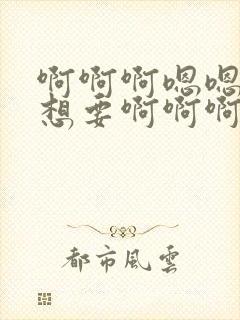 啊啊啊嗯嗯
想要啊啊啊
都市风雲